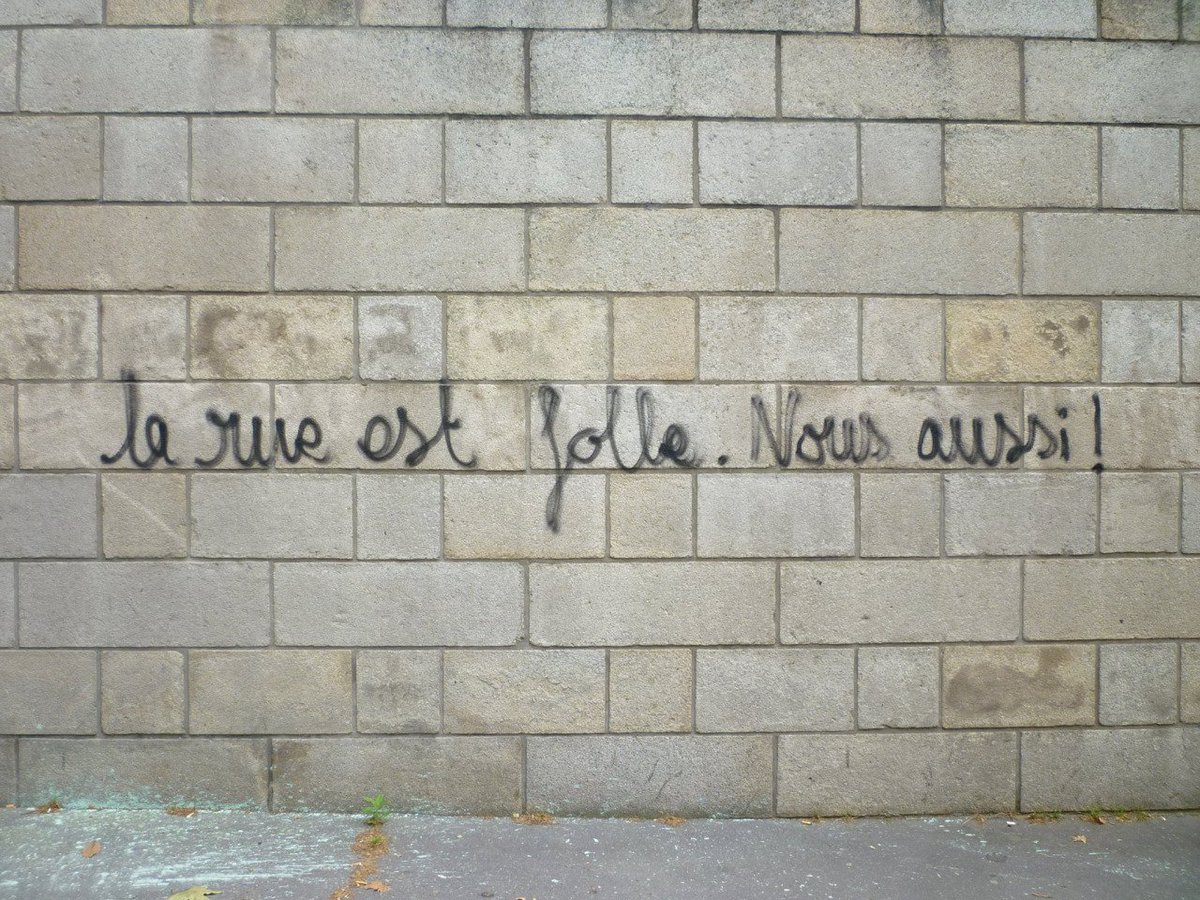 la rue est folle. Nous aussi!